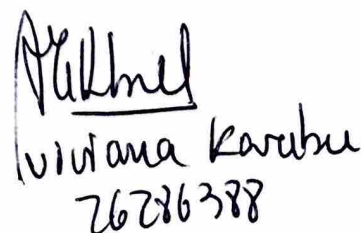 viviana Karubu
26286388